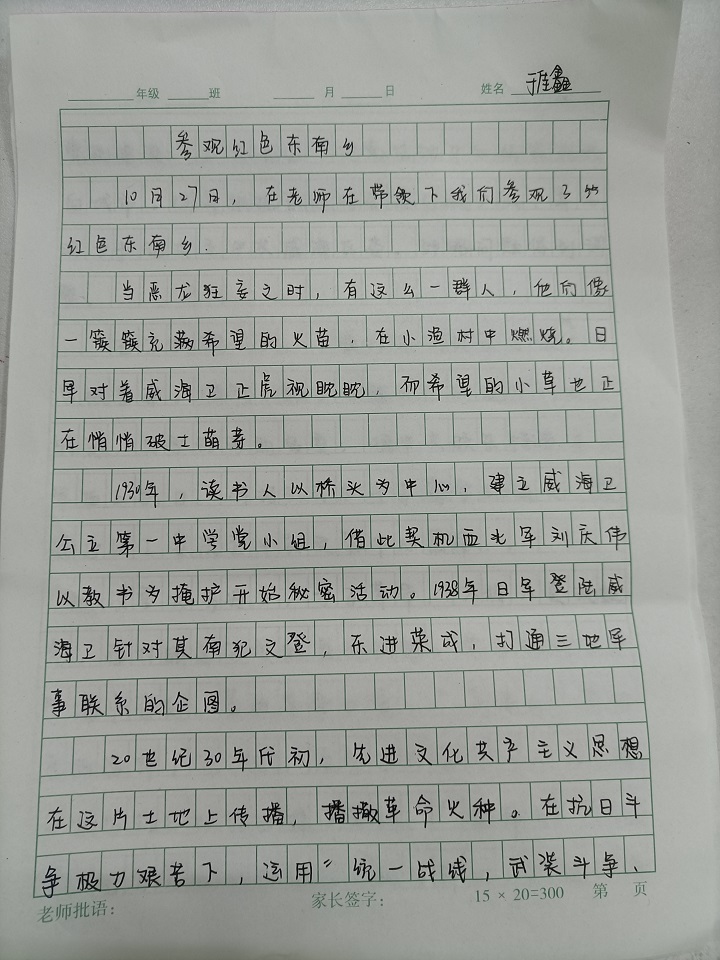 年级 班 月 日 姓名 于佳鑫
参观红色东南乡
10月27日，在老师在带领下我们参观了
红色东南乡.
当恶龙狂妄之时，有这么一群人，他们像
一簇簇充满希望的火苗，在小渔村中燃烧。日
军对着威海卫正虎视眈眈，而希望的小草也正
在悄悄破土萌芽。
1930年，读书人以桥头为中心，建立威海卫
公立第一中学党小组，借此契机西北军刘庆伟
以教书为掩护开始秘密活动。1938年日军登陆威
海卫针对其南犯文登，东进荣成，打通三地军
事联系的企图。
20世纪30年代初，先进文化共产主义思想
在这片土地上传播，播撒革命火种。在抗日斗
争极力艰苦下，运用“统一战线，武装斗争、
老师批语： 家长签字： 15 × 20=300 第 页